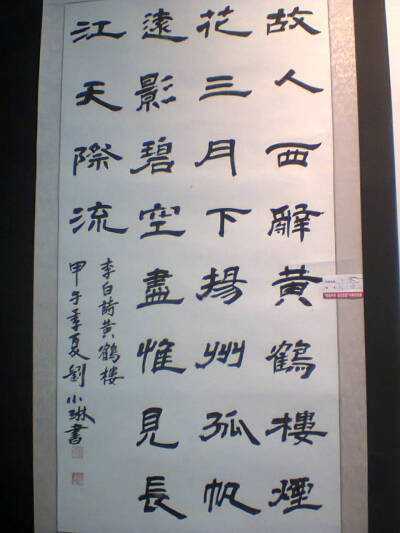 故人西辭黄鶴樓煙
花三月下揚州孤帆
遠影碧空盡惟見長
江天際流
李白詩黄鶴樓
甲午季夏劉小琳書